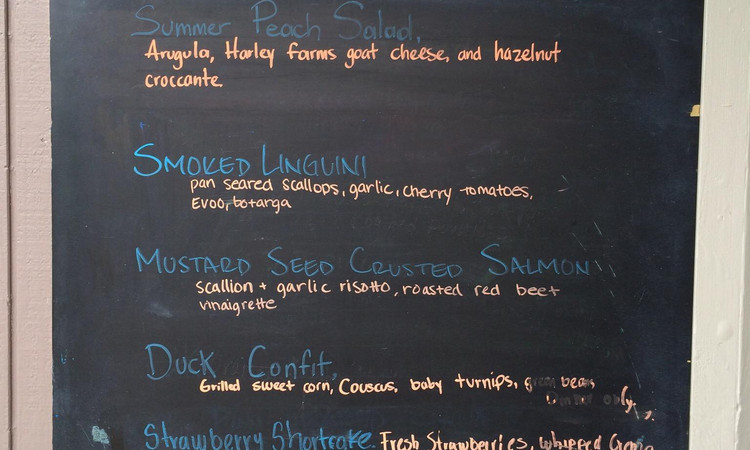 Summer Peach Salad,
Arugula, Harley farms goat cheese, and hazelnut
croccante.
SMOKED LINGUINI
pan seared scallops, garlic, cherry tomatoes,
Evoo, botarga
MUSTARD SEED CRUSTED SALMON
scallion + garlic risotto, roasted red beet
vinaigrette
Duck Confit,
Grilled sweet corn, Couscus, baby turnips, green beans
Dinner only.
Strawberry Shortcake. Fresh Strawberries, whipped Crema